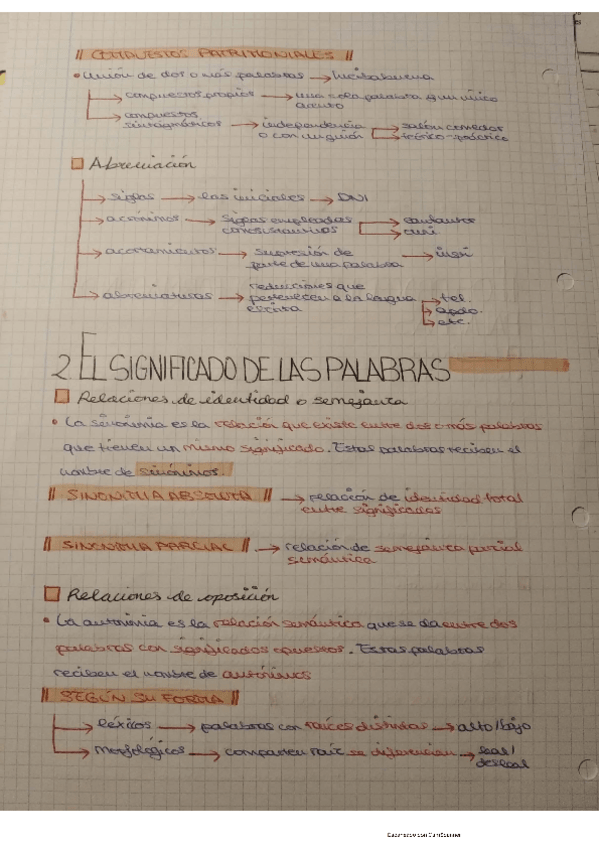 COMPUESTOS PATRIMONIALES
• Unión de dos o más palabras → hierbabuena
→ compuestos propios → una sola palabra y un único
acento
→ compuestos
sintagmáticos → independencia → salón comedor
o con un guión → teórico-práctico
Abreviación
→ siglas → las iniciales → DNI
→ acrónimos → siglas empleadas → cantautor
como sustantivos → ovni
→ acortamientos → supresión de → insti
parte de una palabra
reducciones que
→ abreviaturas → pertenecen a la lengua → tel.
escrita → apdo.
→ etc.
2. EL SIGNIFICADO DE LAS PALABRAS
Relaciones de identidad o semejanza
• La sinonimia es la relación que existe entre dos o más palabras
que tienen un mismo significado. Estas palabras reciben el
nombre de sinónimos.
SINONIMIA ABSOLUTA → relación de identidad total
entre significados
SINONIMIA PARCIAL → relación de semejanza parcial
semántica
Relaciones de oposición
• La antonimia es la relación semántica que se da entre dos
palabras con significados opuestos. Estas palabras
reciben el nombre de antónimos
SEGÚN SU FORMA
→ léxicos → palabras con raíces distintas → alto/bajo
→ morfológicos → comparten raíz se diferencian → leal/
desleal
Escaneado con CamScanner